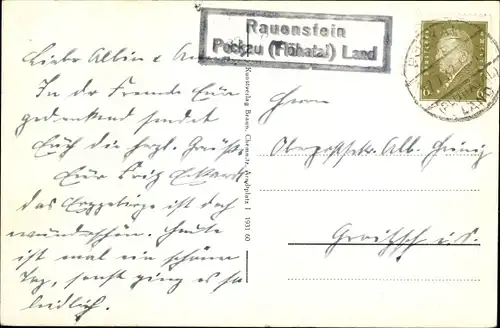 Rauenstein
Pockau (Flöhatal) Land
Liebe Albin u.
In der Fremde Eurer
gedenkend sendet
Euch die herzl. Grüße
Euer Fritz
das Erzgebirge ist doch
wunderschön. Heute
ist mal ein schöner
Tag, sonst ging es so
leidlich.
Kunstverlag Braun, Chemnitz, 1 1931 60
Herrn
Oberpostsekr. Alb.
Groitzsch i. S.
6 6